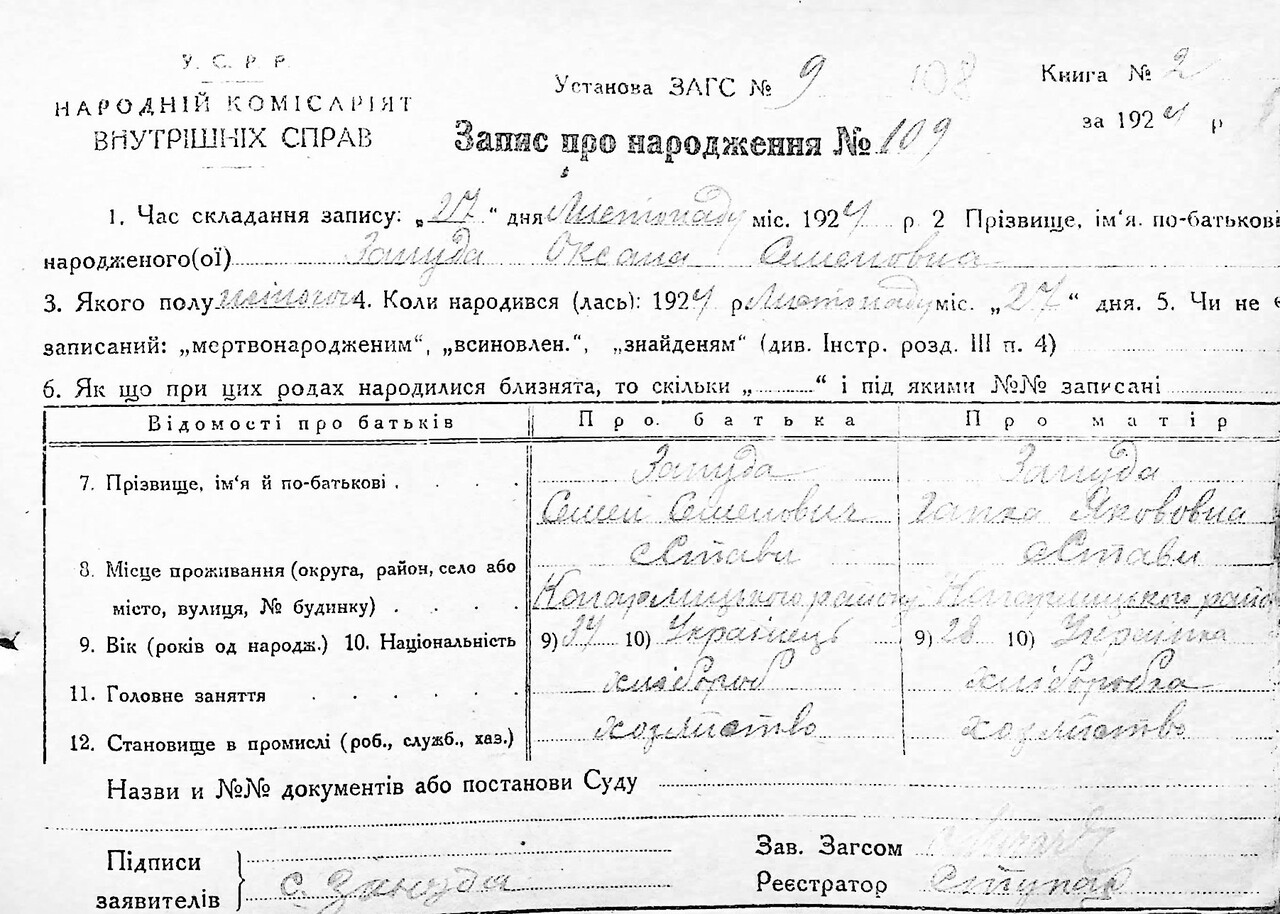 У. С. Р. Р.
НАРОДНІЙ КОМІСАРІЯТ
ВНУТРІШНІХ СПРАВ
Установа ЗАГС № 9 108
Книга № 2
за 1924 р
Запис про народження № 109
1. Час складання запису: „27“ дня Листопаду міс. 1924 р 2 Прізвище, ім‘я. по-батькові
народженого(ої) Запуда Оксана Семеновна
3. Якого полу жіночого 4. Коли народився (лась): 1924 р Листопаду міс. „27“ дня. 5. Чи не є
записаний: „мертвонародженим“, „всиновлен.“, „знайденям“ (див. Інстр. розд. III п. 4)
6. Як що при цих родах народилися близнята, то скільки „ “ і під якими №№ записані
Відомості про батьків Про. батька Про матір
7. Прізвище, ім‘я й по-батькові Запуда Запуда
Семен Семенович Гапка Якововна
8. Місце проживання (округа, район, село або с Стави с Стави
місто, вулиця, № будинку) Кагарлицького району Кагарлицького райо
9. Вік (років од народж.) 10. Національність 9) 37 10) Українець 9) 28 10) Українка
11. Головне заняття хлібороб хліборобка
12. Становище в промислі (роб., служб., хаз.) хозяйство хозяйство
Назви и №№ документів або постанови Суду
Підписи
заявителів С. Запуда
Зав. Загсом
Реєстратор Ступак